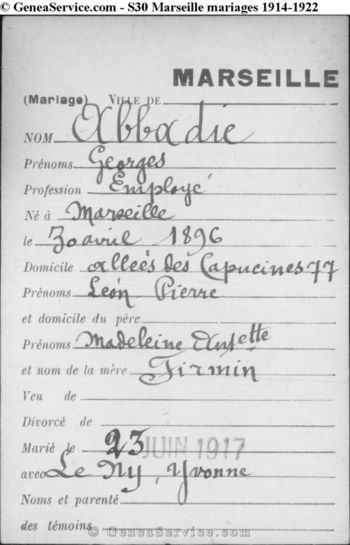 © GeneaService.com - S30 Marseille mariages 1914-1922
MARSEILLE
(Mariage) VILLE DE
NOM Abbadie
Prénoms Georges
Profession Employé
Né à Marseille
le 30 avril 1896
Domicile alleés des Capucines 77
Prénoms Léon Pierre
et domicile du père
Prénoms Madeleine
et nom de la mère Firmin
Veu de
Divorcé de
Marié le 23 JUIN 1917
avec Le Ny, Yvonne
Noms et parenté
des témoins
© GeneaService.com